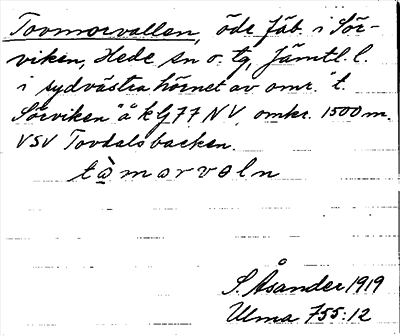 Tovmorvallen, öde fäb. i Sör-
viken, Hede sn o. tg, Jämtl. l.
i sydvästra hörnet av omr. "t.
Sörviken" å k Gf 77 NV, omkr. 1500 m.
VSV Tovdalsbacken.
tàmarvoln
S. Åsander 1919
Ulma 755:12